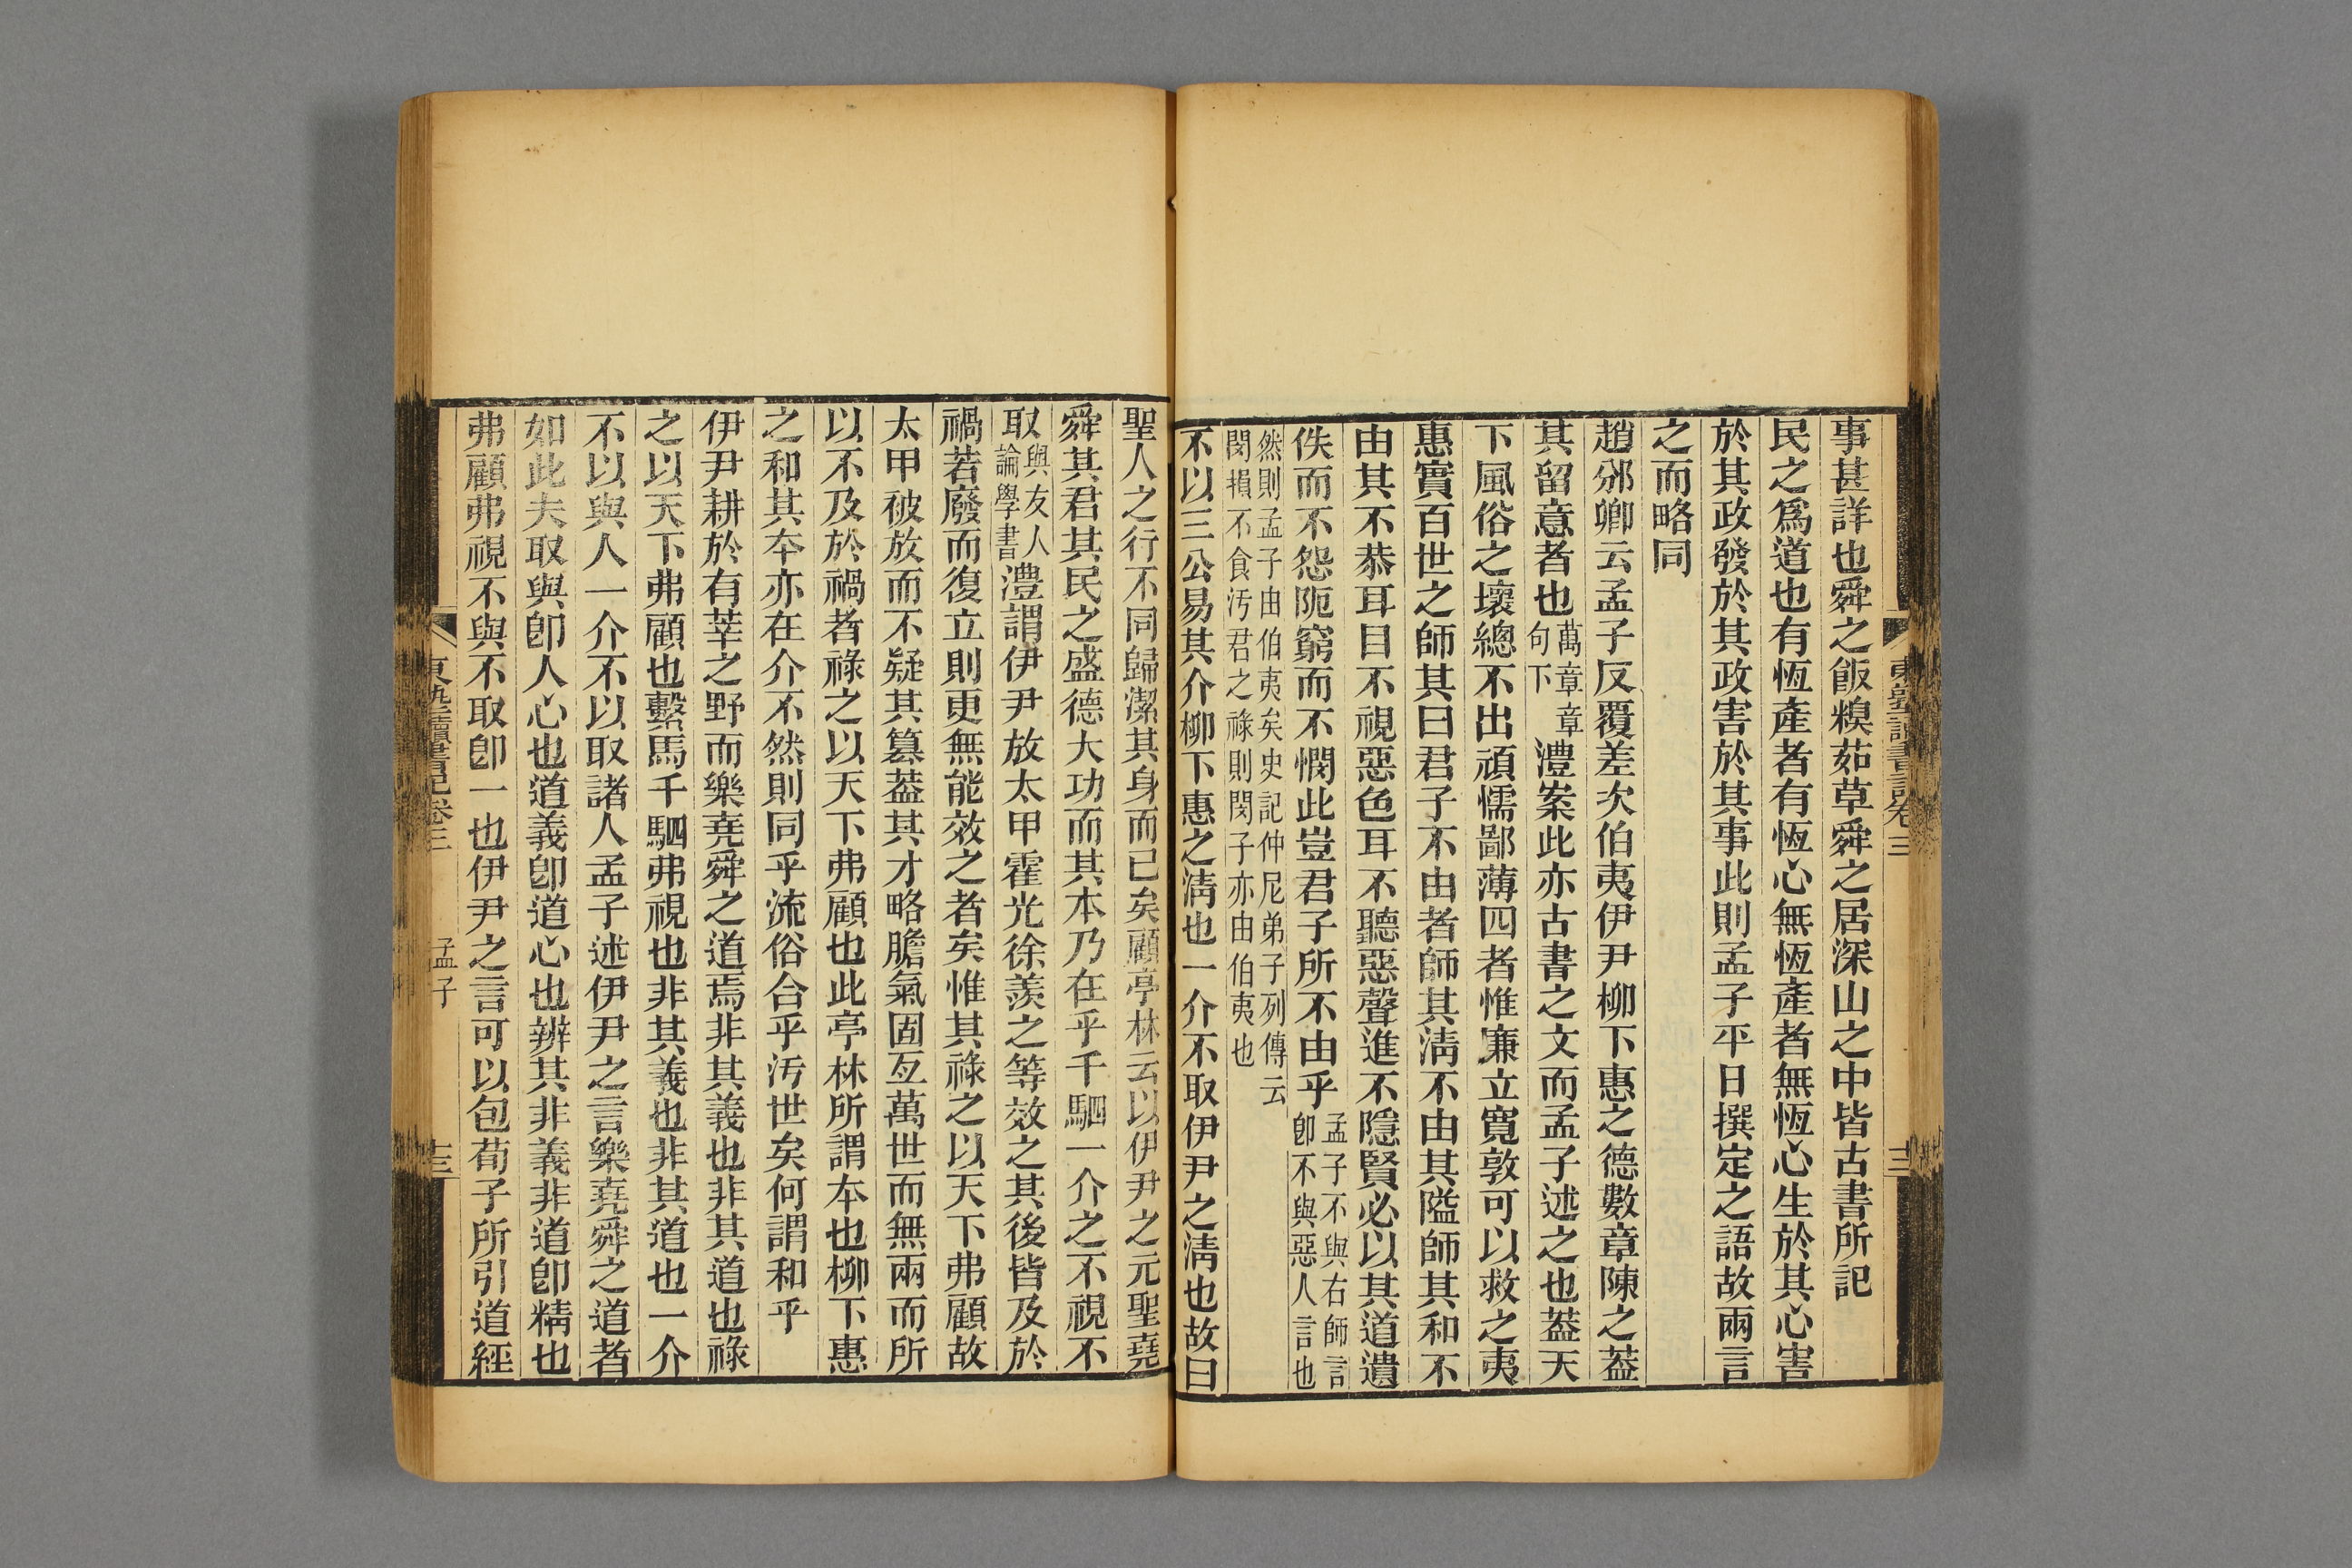 事甚詳也舜之飯糗茹草舜之居深山之中皆古書所記
民之爲道也有恆產者有恆心無恆產者無恆心生於其心害
於其政發於其政害於其事此則孟子平日撰定之語故兩言
之而略同
趙邠卿云孟子反覆差次伯夷伊尹柳下惠之德數章陳之葢
其留意者也萬章章句下澧案此亦古書之文而孟子述之也葢天
下風俗之壞總不出頑懦鄙薄四者惟廉立寬敦可以救之夷
惠實百世之師其曰君子不由者師其淸不由其隘師其和不
由其不恭耳目不視惡色耳不聽惡聲進不隱賢必以其道遺
佚而不怨阨窮而不憫此豈君子所不由乎孟子不與右師言卽不與惡人言也
然則孟子由伯夷矣史記仲尼弟子列傳云
閔損不食汚君之祿則閔子亦由伯夷也
不以三公易其介柳下惠之淸也一介不取伊尹之淸也故曰
東塾讀書記卷三
十二
聖人之行不同歸潔其身而已矣顧亭林云以伊尹之元聖堯
舜其君其民之盛德大功而其本乃在乎千駟一介之不視不
取與友人論學書澧謂伊尹放太甲霍光徐羨之等效之其後皆及於
禍若廢而復立則更無能效之者矣惟其祿之以天下弗顧故
太甲被放而不疑其篡葢其才略膽氣固亙萬世而無兩而所
以不及於禍者祿之以天下弗顧也此亭林所謂本也柳下惠
之和其夲亦在介不然則同乎流俗合乎汚世矣何謂和乎
伊尹耕於有莘之野而樂堯舜之道焉非其義也非其道也祿
之以天下弗顧也繫馬千駟弗視也非其義也非其道也一介
不以與人一介不以取諸人孟子述伊尹之言樂堯舜之道者
如此夫取與卽人心也道義卽道心也辨其非義非道卽精也
弗顧弗視不與不取卽一也伊尹之言可以包荀子所引道經
東塾讀書記卷三
孟子
十三